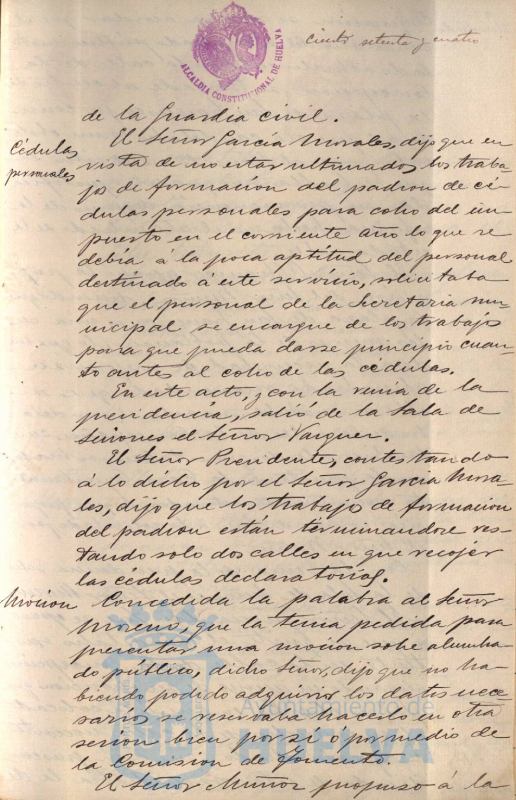 ciento setenta y cuatro
ALCALDIA CONSTITUCIONAL DE HUELVA
de la Guardia civil.
Cédulas personales
El Señor García Morales, dijo que en
vista de no estar ultimados los traba-
jo de formacion del padron de cé-
dulas personales para cobro del im-
puesto en el corriente año lo que se
debía á la poca aptitud del personal
destinado á este servicio, solicitaba
que el personal de la Secretaría mu-
nicipal se encargue de los trabajos
para que pueda darse principio cuan-
to antes al cobro de las cédulas.
En este acto, y con la venia de la
presidencia, salió de la Sala de
Sesiones el Señor Vazquez.
El Señor Presidente, contestando
á lo dicho por el Señor García Mora-
les, dijo que los trabajo de formacion
del padron están terminandose res-
tando solo dos calles en que recojer
las cédulas declaratorias.
Mocion
Concedida la palabra al Señor
Moreno, que la tenia pedida para
presentar una mocion sobre alumbra-
do público, dicho Señor, dijo que no ha-
biendo podido adquirir los datos nece-
sarios se reservaba hacerlo en otra
sesion bien por sí o por medio de
la Comision de Fomento.
El Señor Muñoz propuso á la
Ayuntamiento de
HUELVA